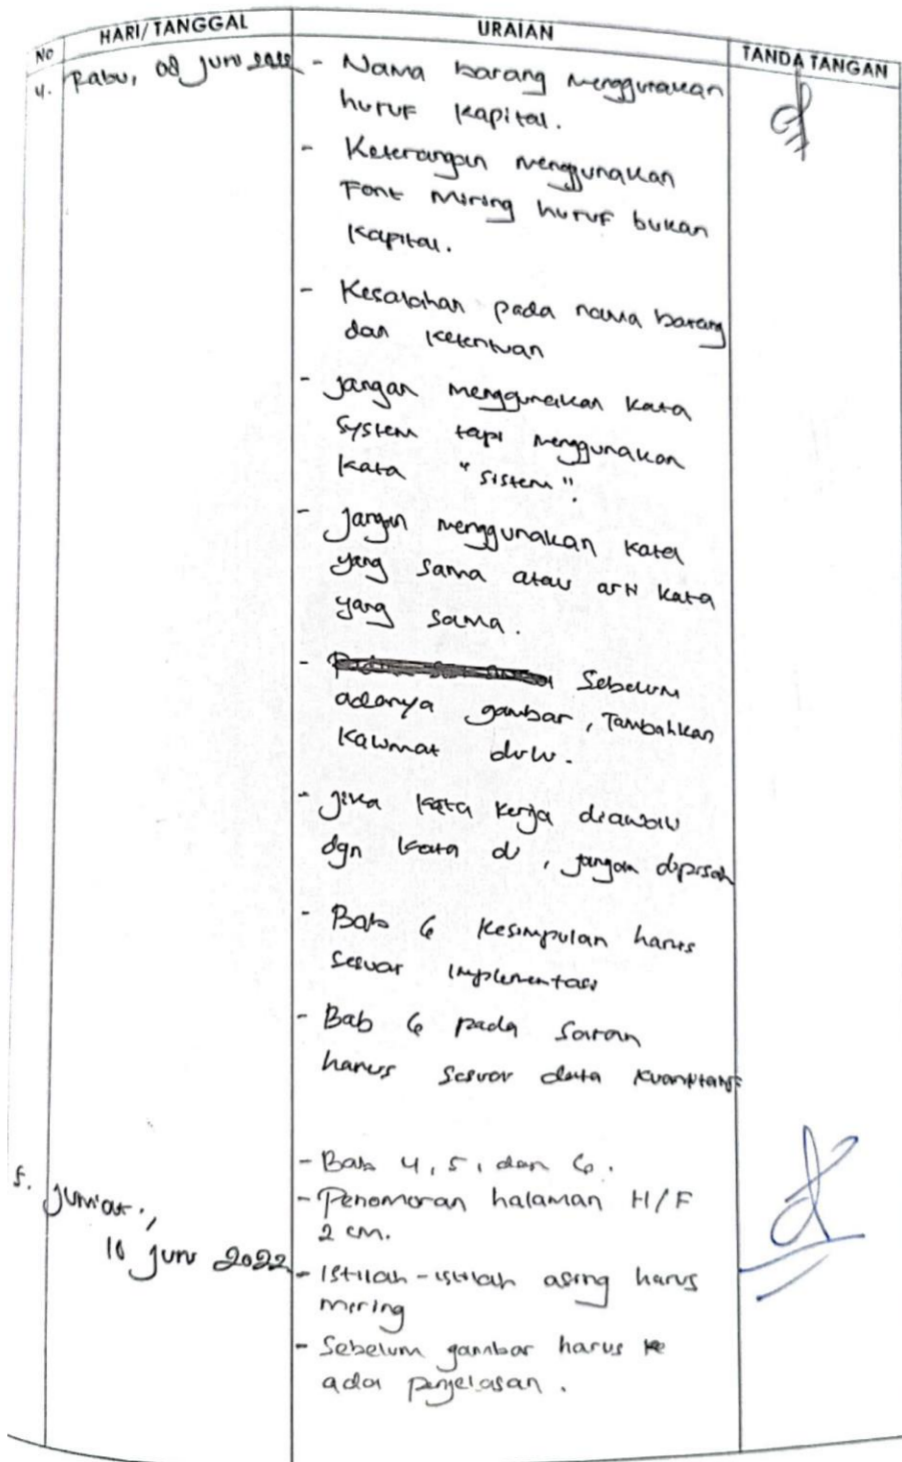 NO HARI/TANGGAL URAIAN TANDA TANGAN
4. Rabu, 08 Juni 2022
- Nama barang menggunakan
huruf kapital.
- Keterangan menggunakan
Font miring huruf bukan
kapital.
- Kesalahan pada nama barang
dan ketentuan
- jangan menggunakan kata
system tapi menggunakan
kata "sistem".
- jangan menggunakan kata
yang sama atau arti kata
yang sama.
- Sebelum
adanya gambar, Tambahkan
kalimat dulu.
- jika kata kerja diawali
dgn kata di, jangan dipisah
- Bab 6 kesimpulan harus
sesuai implementasi
- Bab 6 pada Saran
harus sesuai data kuantitatif
5. Jum'at,
10 Juni 2022
- Bab 4, 5, dan 6.
- Penomoran halaman H/F
2 cm.
- Istilah-istilah asing harus
miring
- Sebelum gambar harus
ada penjelasan.